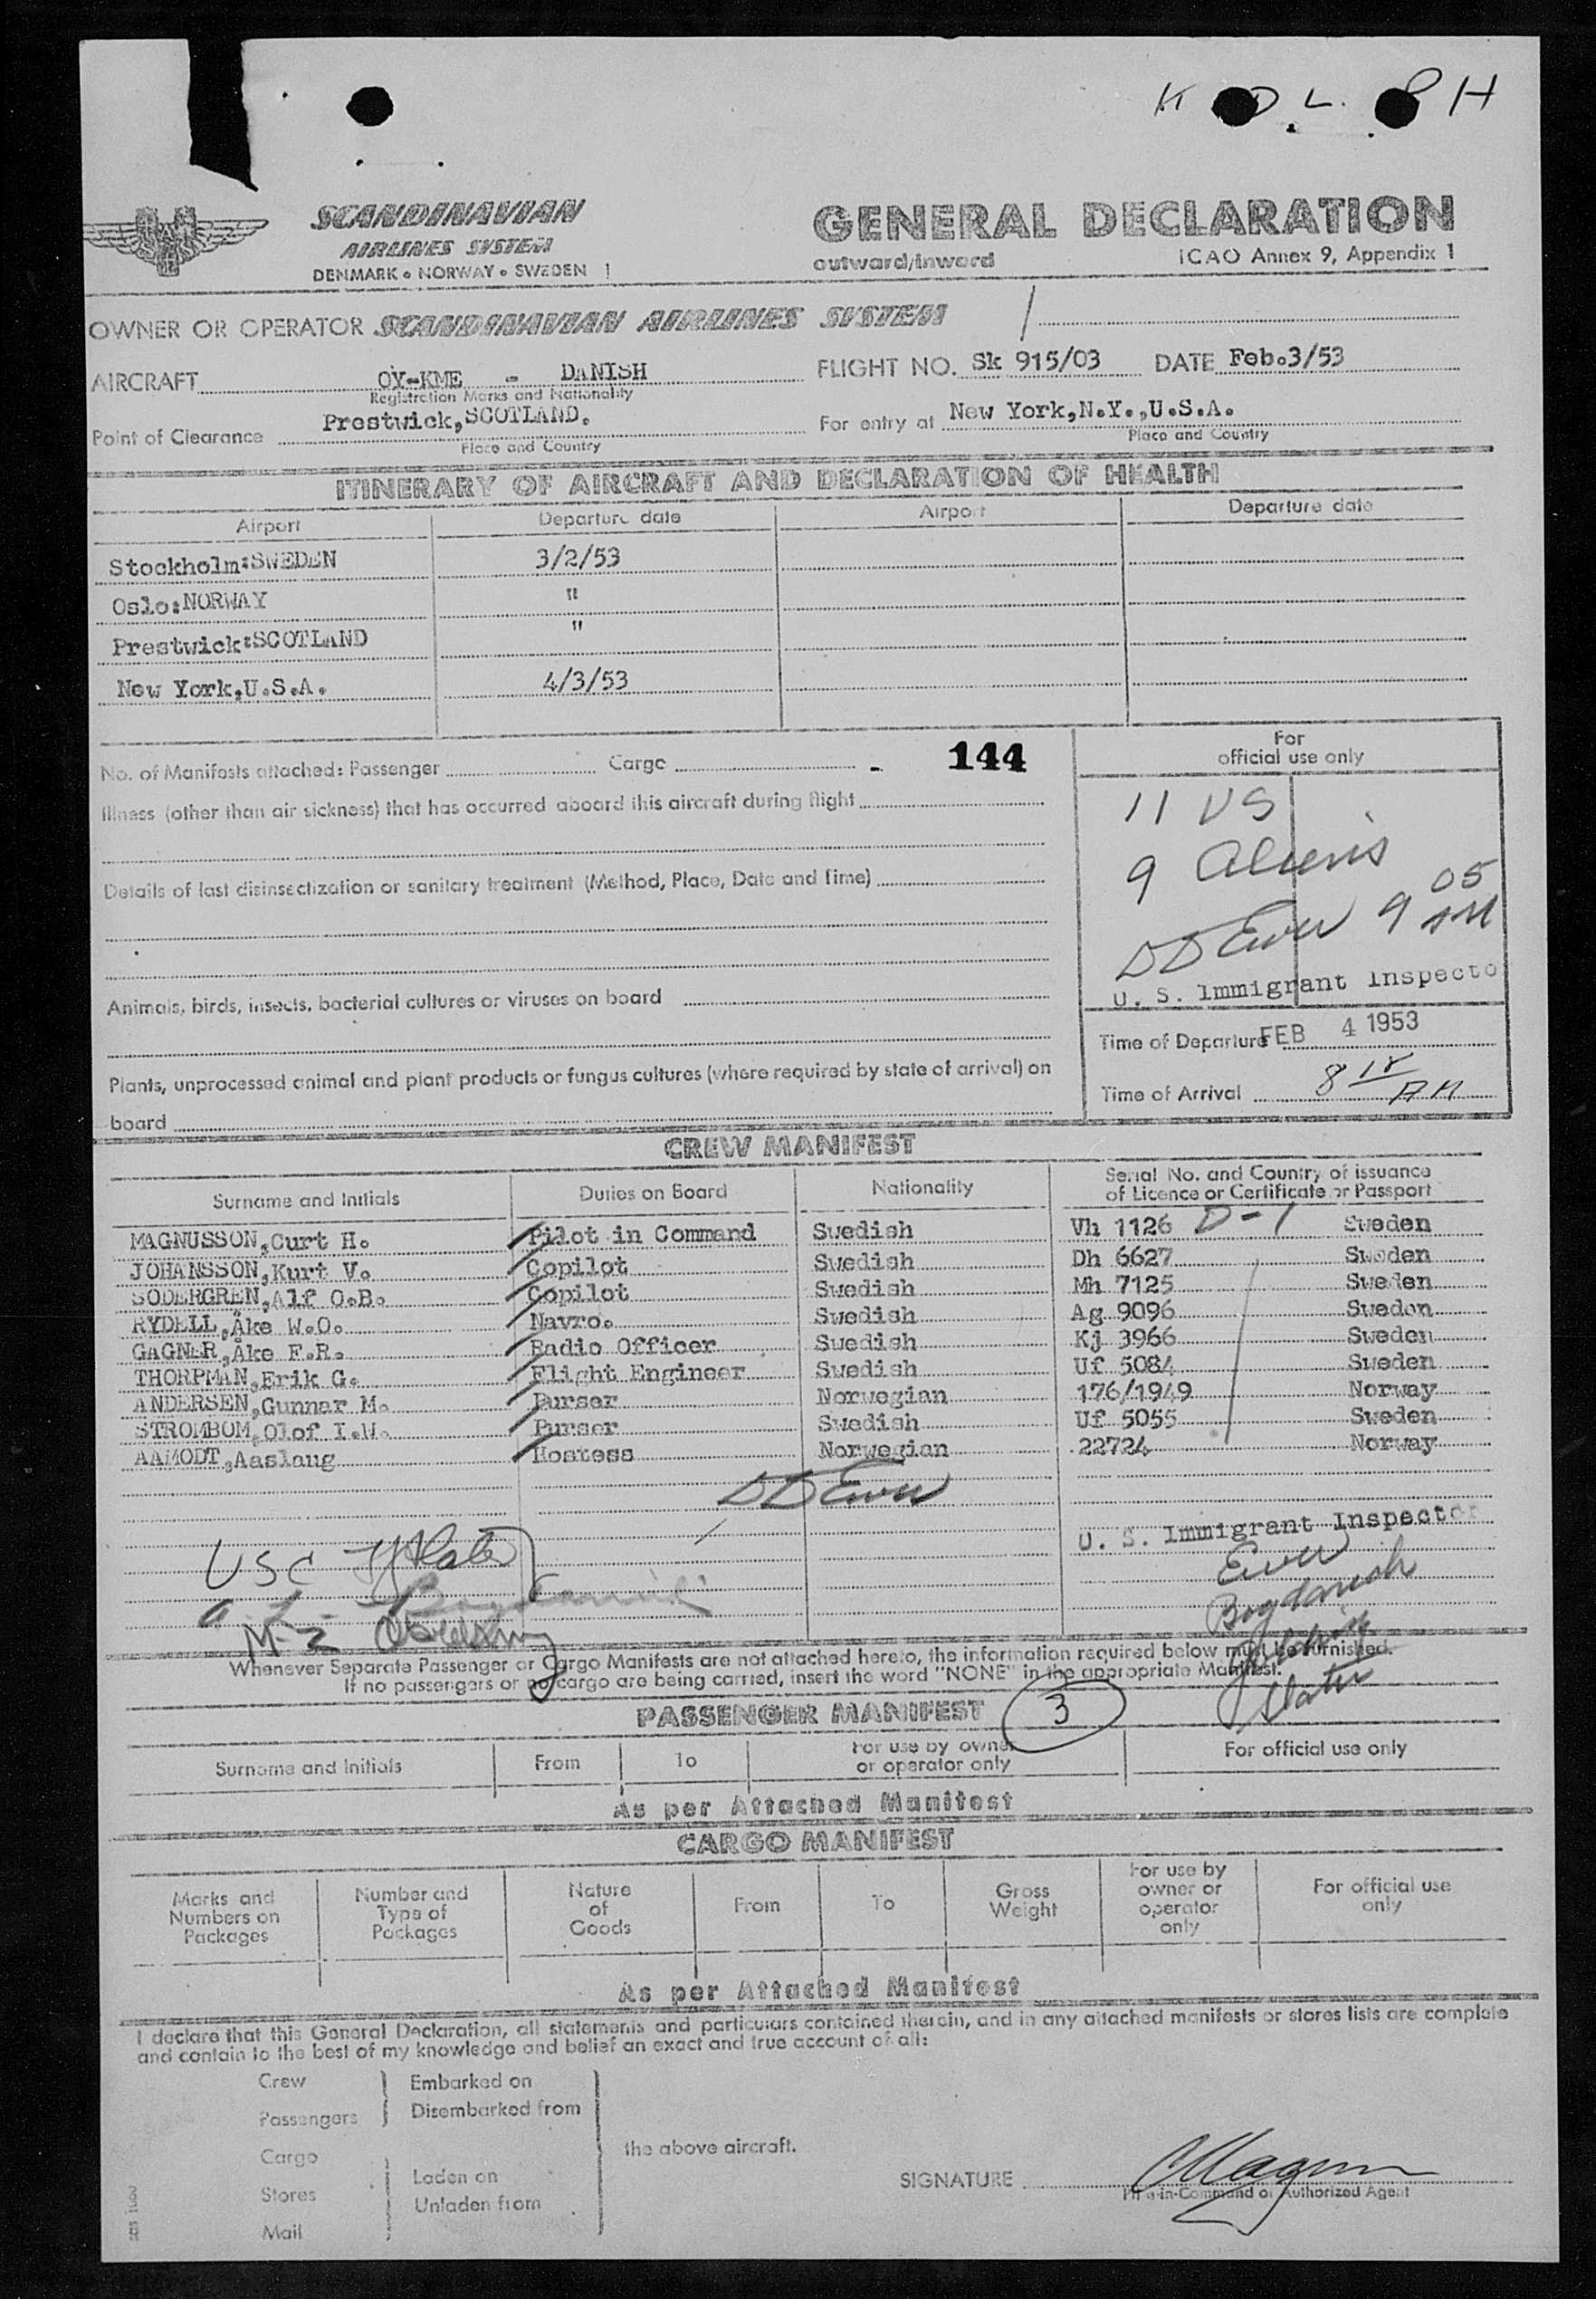 K D L. P H
SCANDINAVIAN
AIRLINES SYSTEM
DENMARK • NORWAY • SWEDEN
GENERAL DECLARATION
outward/inward
ICAO Annex 9, Appendix 1
OWNER OR OPERATOR SCANDINAVIAN AIRLINES SYSTEM
AIRCRAFT OY-KME - DANISH
Registration Marks and Nationality
FLIGHT NO. Sk 915/03 DATE Feb.3/53
Point of Clearance Prestwick,SCOTLAND.
Place and Country
For entry at New York,N.Y.,U.S.A.
Place and Country
ITINERARY OF AIRCRAFT AND DECLARATION OF HEALTH
Airport Departure date Airport Departure date
Stockholm:SWEDEN 3/2/53
Oslo:NORWAY "
Prestwick:SCOTLAND "
New York,U.S.A. 4/3/53
No. of Manifests attached: Passenger Cargo - 144
Illness (other than air sickness) that has occurred aboard this aircraft during flight
Details of last disinsectization or sanitary treatment (Method, Place, Date and Time)
Animals, birds, insects, bacterial cultures or viruses on board
Plants, unprocessed animal and plant products or fungus cultures (where required by state of arrival) on
board
For
official use only
11 US
9 Aliens
9 05 AM
U. S. Immigrant Inspecto
Time of Departure FEB 4 1953
Time of Arrival 8 18 AM
CREW MANIFEST
Surname and Initials Duties on Board Nationality Serial No. and Country of issuance
of Licence or Certificate or Passport
MAGNUSSON,Curt H. Pilot in Command Swedish Vh 1126 D-1 Sweden
JOHANSSON,Kurt V. Copilot Swedish Dh 6627 Sweden
SODERGREN,Alf O.B. Copilot Swedish Mh 7125 Sweden
RYDELL,Åke W.O. Navro. Swedish Ag 9096 Sweden
GAGNER,Åke F.R. Radio Officer Swedish Kj 3966 Sweden
THORPMAN,Erik G. Flight Engineer Swedish Uf 5084 Sweden
ANDERSEN,Gunnar M. Purser Norwegian 176/1949 Norway
STROMBOM,Olof I.W. Purser Swedish Uf 5055 Sweden
AAMODT,Aaslaug Hostess Norwegian 22724 Norway
U. S. Immigrant Inspector
USC
Whenever Separate Passenger or Cargo Manifests are not attached hereto, the information required below must be furnished.
If no passengers or no cargo are being carried, insert the word "NONE" in the appropriate Manifest.
PASSENGER MANIFEST 3
Surname and Initials From To For use by owner
or operator only For official use only
As per Attached Manifest
CARGO MANIFEST
Marks and
Numbers on
Packages
Number and
Type of
Packages
Nature
of
Goods
From
To
Gross
Weight
For use by
owner or
operator
only
For official use
only
As per Attached Manifest
I declare that this General Declaration, all statements and particulars contained therein, and in any attached manifests or stores lists are complete
and contain to the best of my knowledge and belief an exact and true account of all:
Crew
Passengers
Embarked on
Disembarked from
Cargo
Stores
Mail
Laden on
Unladen from
the above aircraft.
SIGNATURE
Pilot-in-Command or Authorized Agent